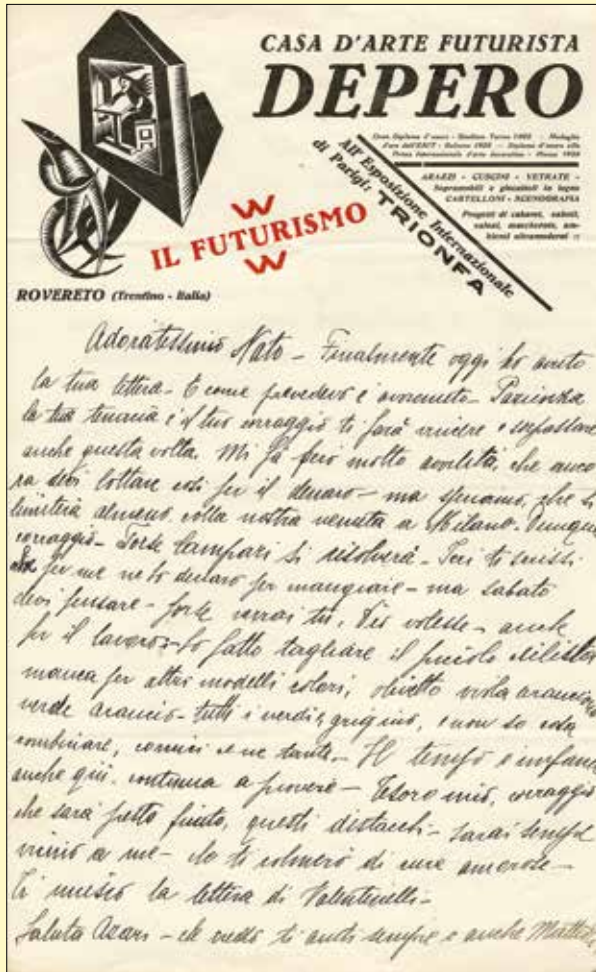 CASA D'ARTE FUTURISTA
DEPERO
Gran Diploma d'onore - Torino 1922 - Medaglia
d'oro
ARAZZI - CUSCINI - VETRATE -
Soprammobili e giocattoli in legno
CARTELLONI - SCENOGRAFIA
Progetti di cabaret,
ultramoderni
All'Esposizione Internazionale
di Parigi: TRIONFA
W
IL FUTURISMO
W
ROVERETO (Trentino - Italia)
Nato - Finalmente oggi ho avuto
la tua lettera - E come prevedevo è avvenuto -
la tua tenacia e il tuo corraggio ti farà vincere e sorpassare
anche questa volta. Mi fa però molto che anco
ra devi lottare così per il denaro - ma speriamo, che si
almeno colla nostra venuta a Milano. Dunque
corraggio - Forse Campari si risolverà - Ieri ti scrissi
per me ne ho denaro per mangiare - ma sabato
devi pensare - forse verrai tu, Dio volesse - anche
per il lavoro - fatto tagliare il piccolo
manca per altri modelli colori, viola arancione
verde arancio - tutti i verdi, e non so cosa
combinare, cornici - Il tempo è infame
anche qui - continua a piovere - Tesoro mio, corraggio
che sarà presto finito, questi distacchi - sarai sempre
vicino a me - Io ti colmerò di cure amorose -
Ti la lettera di
Saluta Azari - che vedo ti aiuta sempre e anche